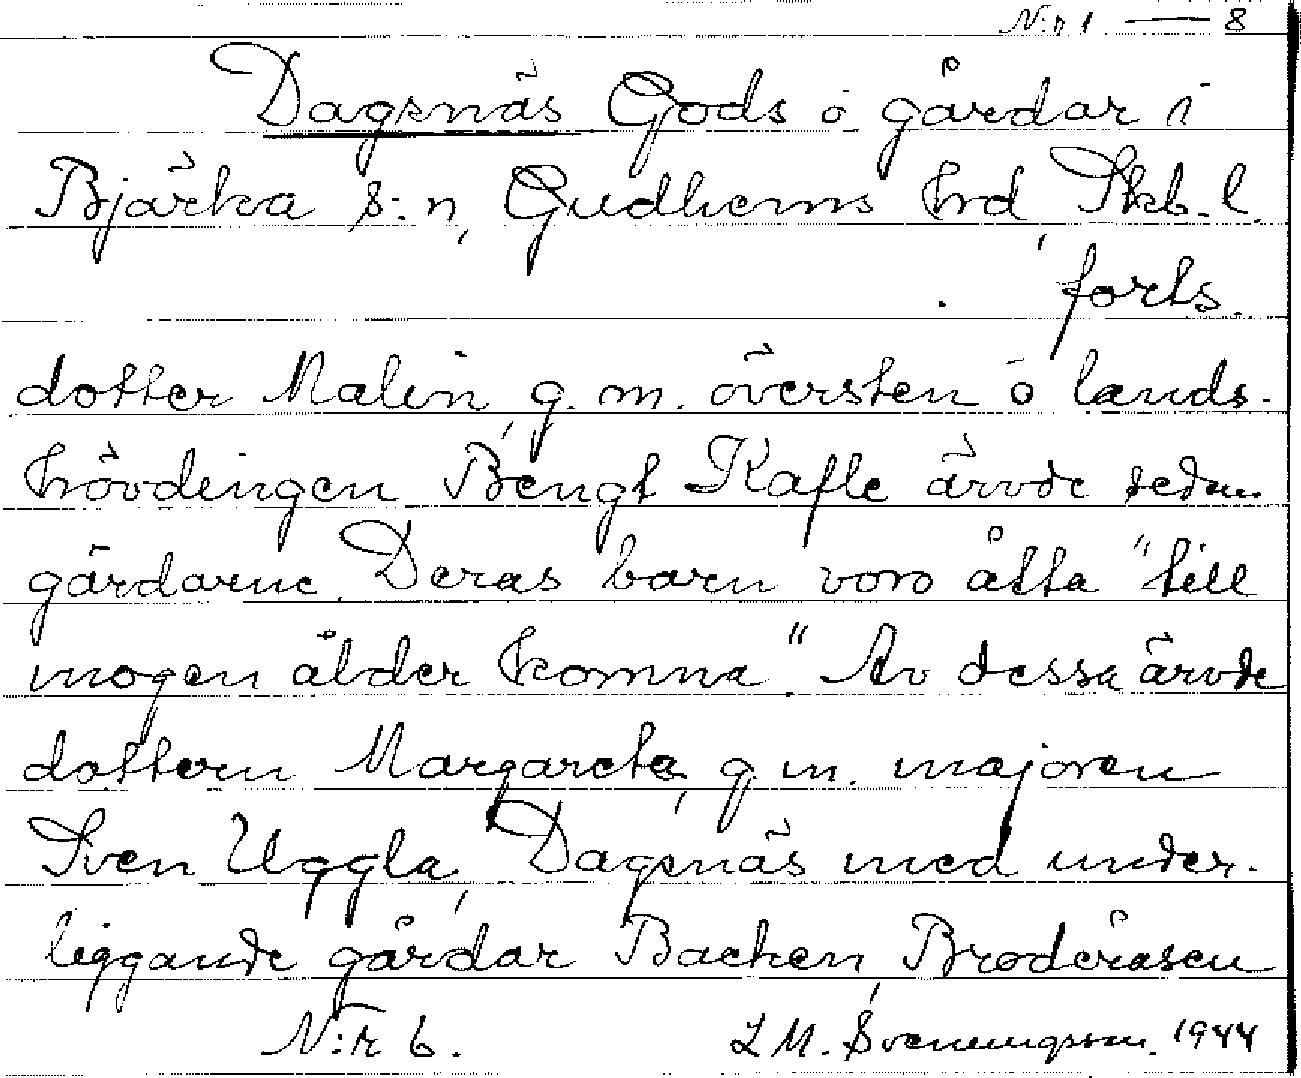 N:o 1 — 8
Dagsnäs Gods o gårdar i
Bjärka s:n, Gudhems hrd, Skb. l.
forts.
dotter Malin, g. m. översten o lands-
hövdingen Bengt Kafle ärvde sedan
gårdarne. Deras barn voro åtta "till
mogen ålder komna". Av dessa ärvde
dottern Margareta, g. m. majoren
Sven Uggla, Dagsnäs med under-
liggande gårdar Backen, Broderåsen
N:r 6. L M. Svenungsson. 1944